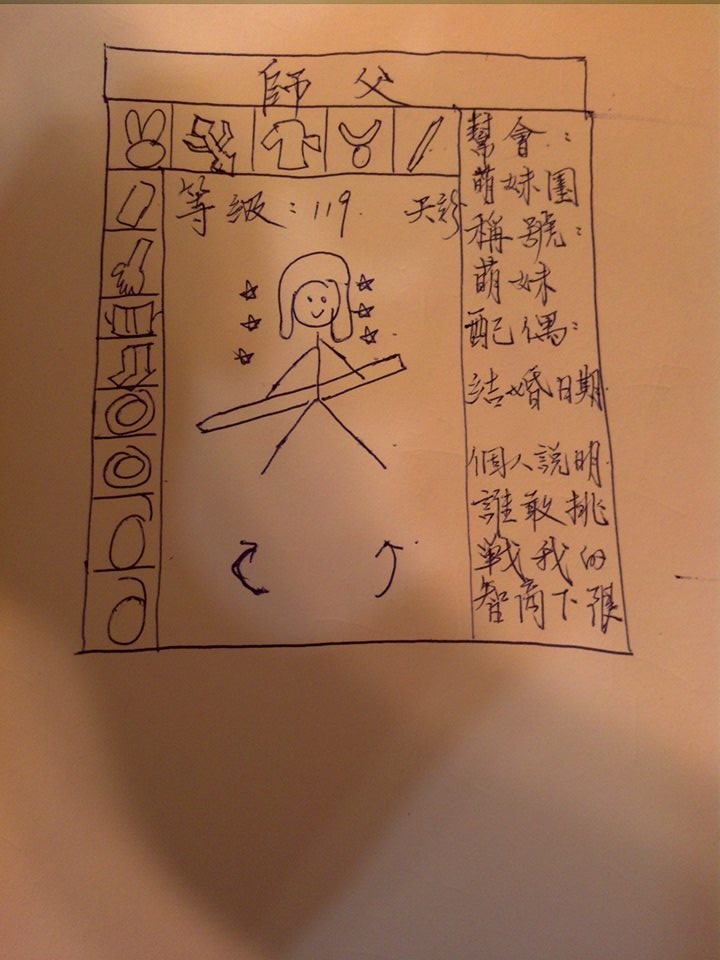 師父
等級：119 天彩
幫會：
萌妹團
稱號：
萌妹
配偶：
結婚日期
個人說明
誰敢挑
戦我的
智商下張